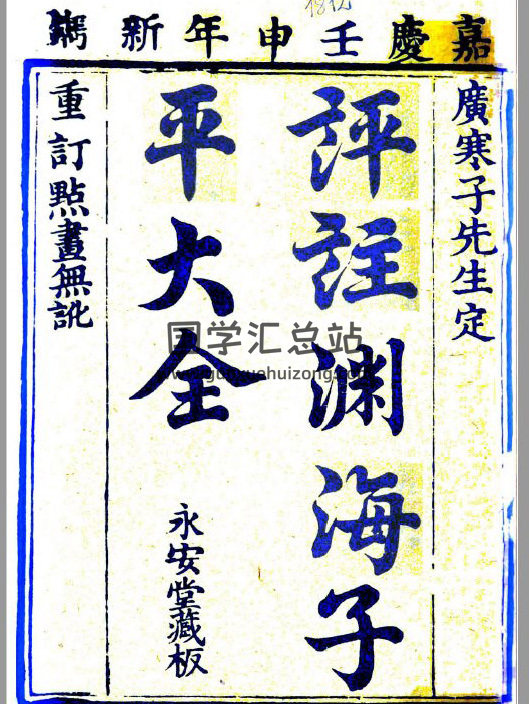 嘉慶壬申年新鐫
廣寒子先生定
評註渊海子
平大全
永安堂藏板
重訂點畫無訛
国学汇总站